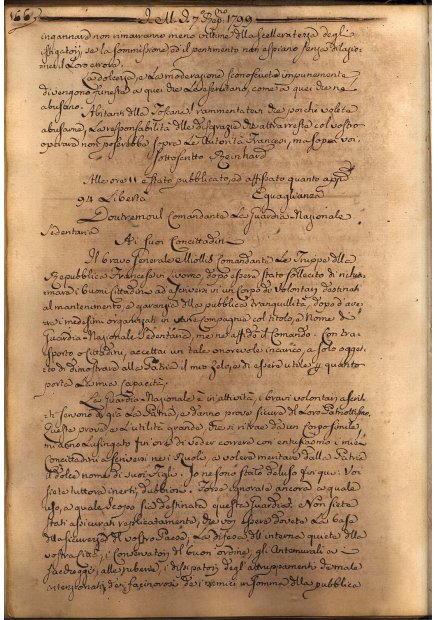 66
ingannarvi non rimarranno meno vittime della scelleratezza degli
istigatori se la sommissione, ed il pentimento non espiano senza dilazio-
ne il Loro errore.
La dolcezza, e La moderazione sconosciute impunemente
divengono funeste a quei che Le esercitano, come a quei che ne
abusano.
Abitanti della Toscana! rammentatevi che poichè volete
abusarne, La responsabilità delle disgrazie che attirereste col vostro
non poserebbe sopra Le Autorità Francesi, ma sopra voi.
Sottoscritto Reinhard
Alle ore 11 è stato pubblicato, ed affissato quanto app.e
94 Libertà Eguaglianza
Doutremoul Comandante La Guardia Nazionale
Sedentaria
Ai suoi Concittadini
Il bravo Generale Miollis Comandante Le Truppe della
Repubblica Francese in Livorno, dopo essere stato sollecito di richia-
mare i buoni Cittadini ad ascriversi in un Corpo di Volontari destinati
al mantenimento, e garanzia della pubblica tranquillità, dopo d'ave-
re i medesimi organizzati in Compagnie col titolo, e Nome di
Guardia Nazionale Sedentaria, me ne affidò il Comando. Con tra-
sporto o Cittadini, accettai un tale onorevole incarico, a solo ogget-
to di dimostrare alla Patria il mio zelo, e di esserle utile per quanto
porta La mia capacità.
La Guardia Nazionale è in attività, i bravi volontari ascrit-
ti servono di già La Patria, e danno prove sicure del Loro Patriottismo.
Queste prove, e L'utilità grande, che si ritrae da un Corpo simile,
mi aveano Lusingato fin'ora di veder correre con entusiasmo i miei
Concittadini a scriversi nei Ruoli, e volere meritare dalla Patria
il dolce nome di suoi Figli. Io ne sono stato deluso fin qui. Voi
siete tuttora inerti, e dubbiosi. Forse ignorate ancora a quale
uso, a quale scopo sia destinata questa Guardia? Non siete
stati assicurati replicatamente, che voi essere dovete La base
della sicurezza del vostro Paese, La difesa della interna quiete della
vostra Città, i Conservatori del buon'ordine, gli Antemurali ai
Saccheggi, alle ruberie, i dissipatori degl'attruppamenti de male
intenzionati, dei facinorosi de i nemici in somma della pubblica